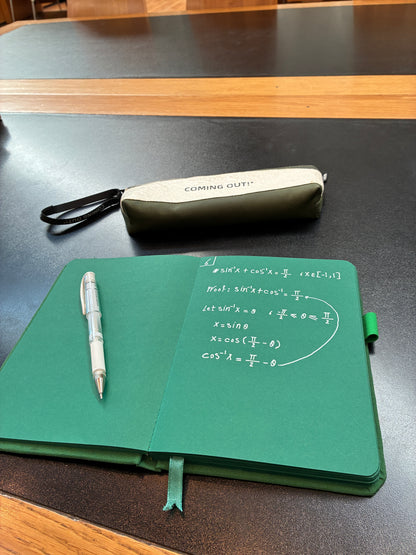 COMING OUT!"
# sin⁻¹x + cos⁻¹x = π/2 , x∈[-1,1]
Proof: sin⁻¹x + cos⁻¹ = π/2
Let sin⁻¹x = θ , π/2 ≤ θ ≤ π/2
x = sinθ
x = cos(π/2 - θ)
cos⁻¹x = π/2 - θ